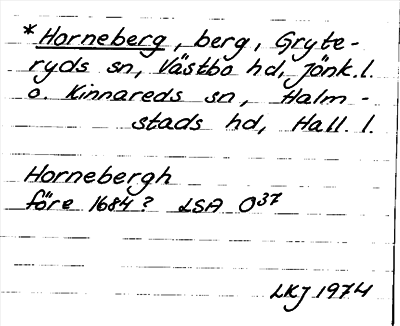 *Horneberg, berg, Gryte-
ryds sn, Västbo hd, Jönk.l.
o. Kinnareds sn, Halm-
stads hd, Hall. l.
Hornebergh
före 1684? LSA O37
LKJ 1974